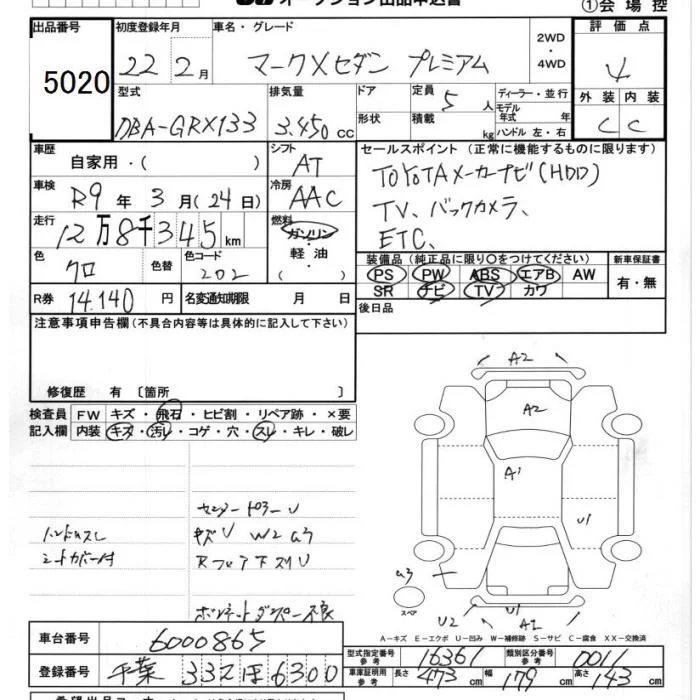 オークション出品申込書 ①会場控
出品番号 初度登録年月 車名・グレード 2WD・4WD 評価点
5020 22 2月 マークXセダン プレミアム 4
型式 排気量 ドア 定員 5人 ディーラー・並行 外装 内装
DBA-GRX133 3.450cc 形状 積載 kg モデル年式 年 ハンドル 左・右 C C
車歴 自家用・( ) シフト AT セールスポイント(正常に機能するものに限ります)
車検 R9年3月(24日) 冷房 AAC TOYOTAメーカーナビ(HDD)
走行 12万8千345km 燃料 ガソリン・軽油( ) TV、バックカメラ、
ETC、
色 クロ 色替 色コード 202 装備品(純正品に限り○をつけてください) 新車保証書
PS PW ABS エアB AW 有・無
SR ナビ TV カワ
R券 14.140円 名変通知期限 月 日 後日品
注意事項申告欄(不具合内容等は具体的に記入して下さい)
修復歴 有〔箇所 〕
検査員 FW キズ・飛石・ヒビ割・リペア跡・×要
記入欄 内装 キズ・汚レ・コゲ・穴・スレ・キレ・破レ
A2
A2
A1
U1
センターピラーU
ハンドルスレ キズU W2 G3
シートカバー付 RフェアFスリU
G3
スペア
ボンネットダンパー不良
U2 U1 A2
A-キズ E-エクボ U-凹み W-補修跡 S-サビ C-腐食 XX-交換済
車台番号 6000865
型式指定番号 参考 16361 類別区分番号 参考 0011
登録番号 千葉 332 ほ 6300 車庫証明用 参考 長さ 473cm 幅 179cm 高さ 143cm